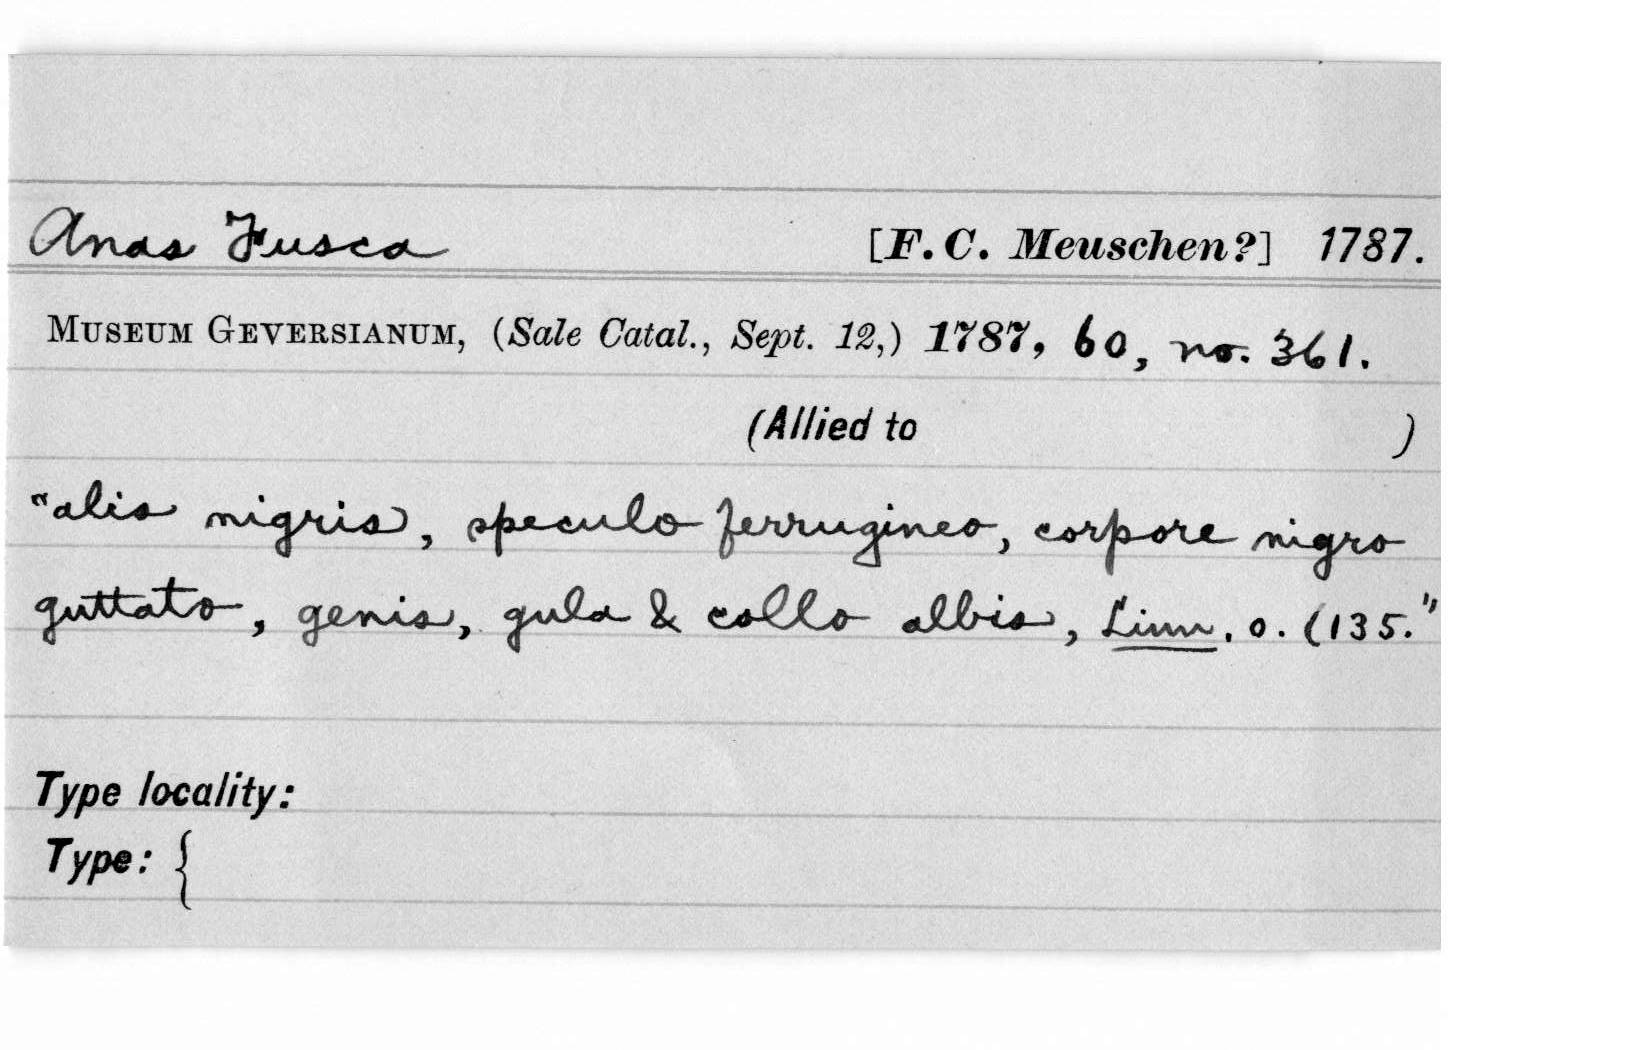 Anas Fusca [F. C. Meuschen?] 1787.
MUSEUM GEVERSIANUM, (Sale Catal., Sept. 12,) 1787, 60, no. 361.
(Allied to )
"alis nigris, speculo ferrugineo, corpore nigro
guttato, genis, gula & collo albis, Linn. o. (135."
Type locality:
Type: {